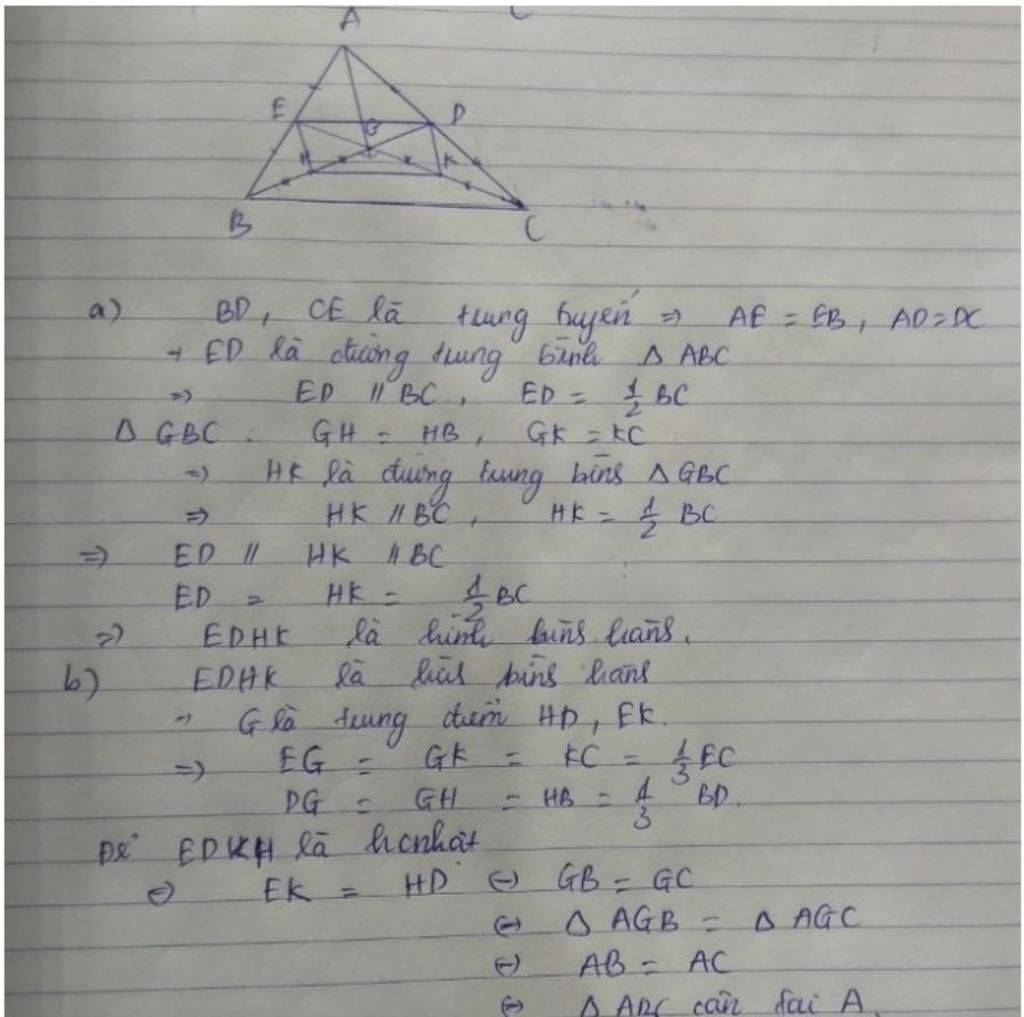 A
E D
G
H K
B C
a) BD, CE là trung tuyến => AE = EB, AD = DC
→ ED là đường trung bình Δ ABC
=> ED // BC, ED = 1/2 BC
Δ GBC : GH = HB, GK = KC
=> HK là đường trung bình Δ GBC
=> HK // BC, HK = 1/2 BC
=> ED // HK // BC
ED = HK = 1/2 BC
=> EDHK là hình bình hành.
b) EDHK là hình bình hành
→ G là trung điểm HD, EK.
=> EG = GK = KC = 1/3 EC
DG = GH = HB = 1/3 BD.
Để EDKH là hcnhật
<=> EK = HD <=> GB = GC
<=> Δ AGB = Δ AGC
<=> AB = AC
<=> Δ ABC cân tại A.